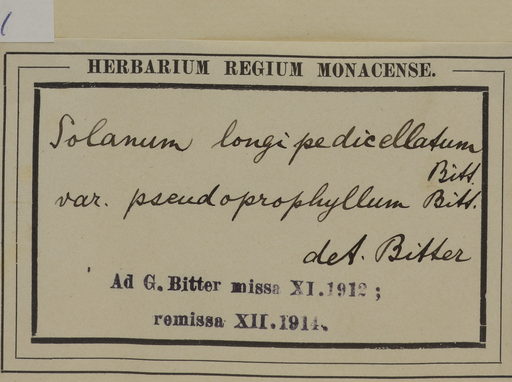 HERBARIUM REGIUM MONACENSE.
Solanum longipedicellatum
Bitt.
var. pseudoprophyllum Bitt.
det. Bitter
Ad G. Bitter missa XI.1912;
remissa XII.1914.